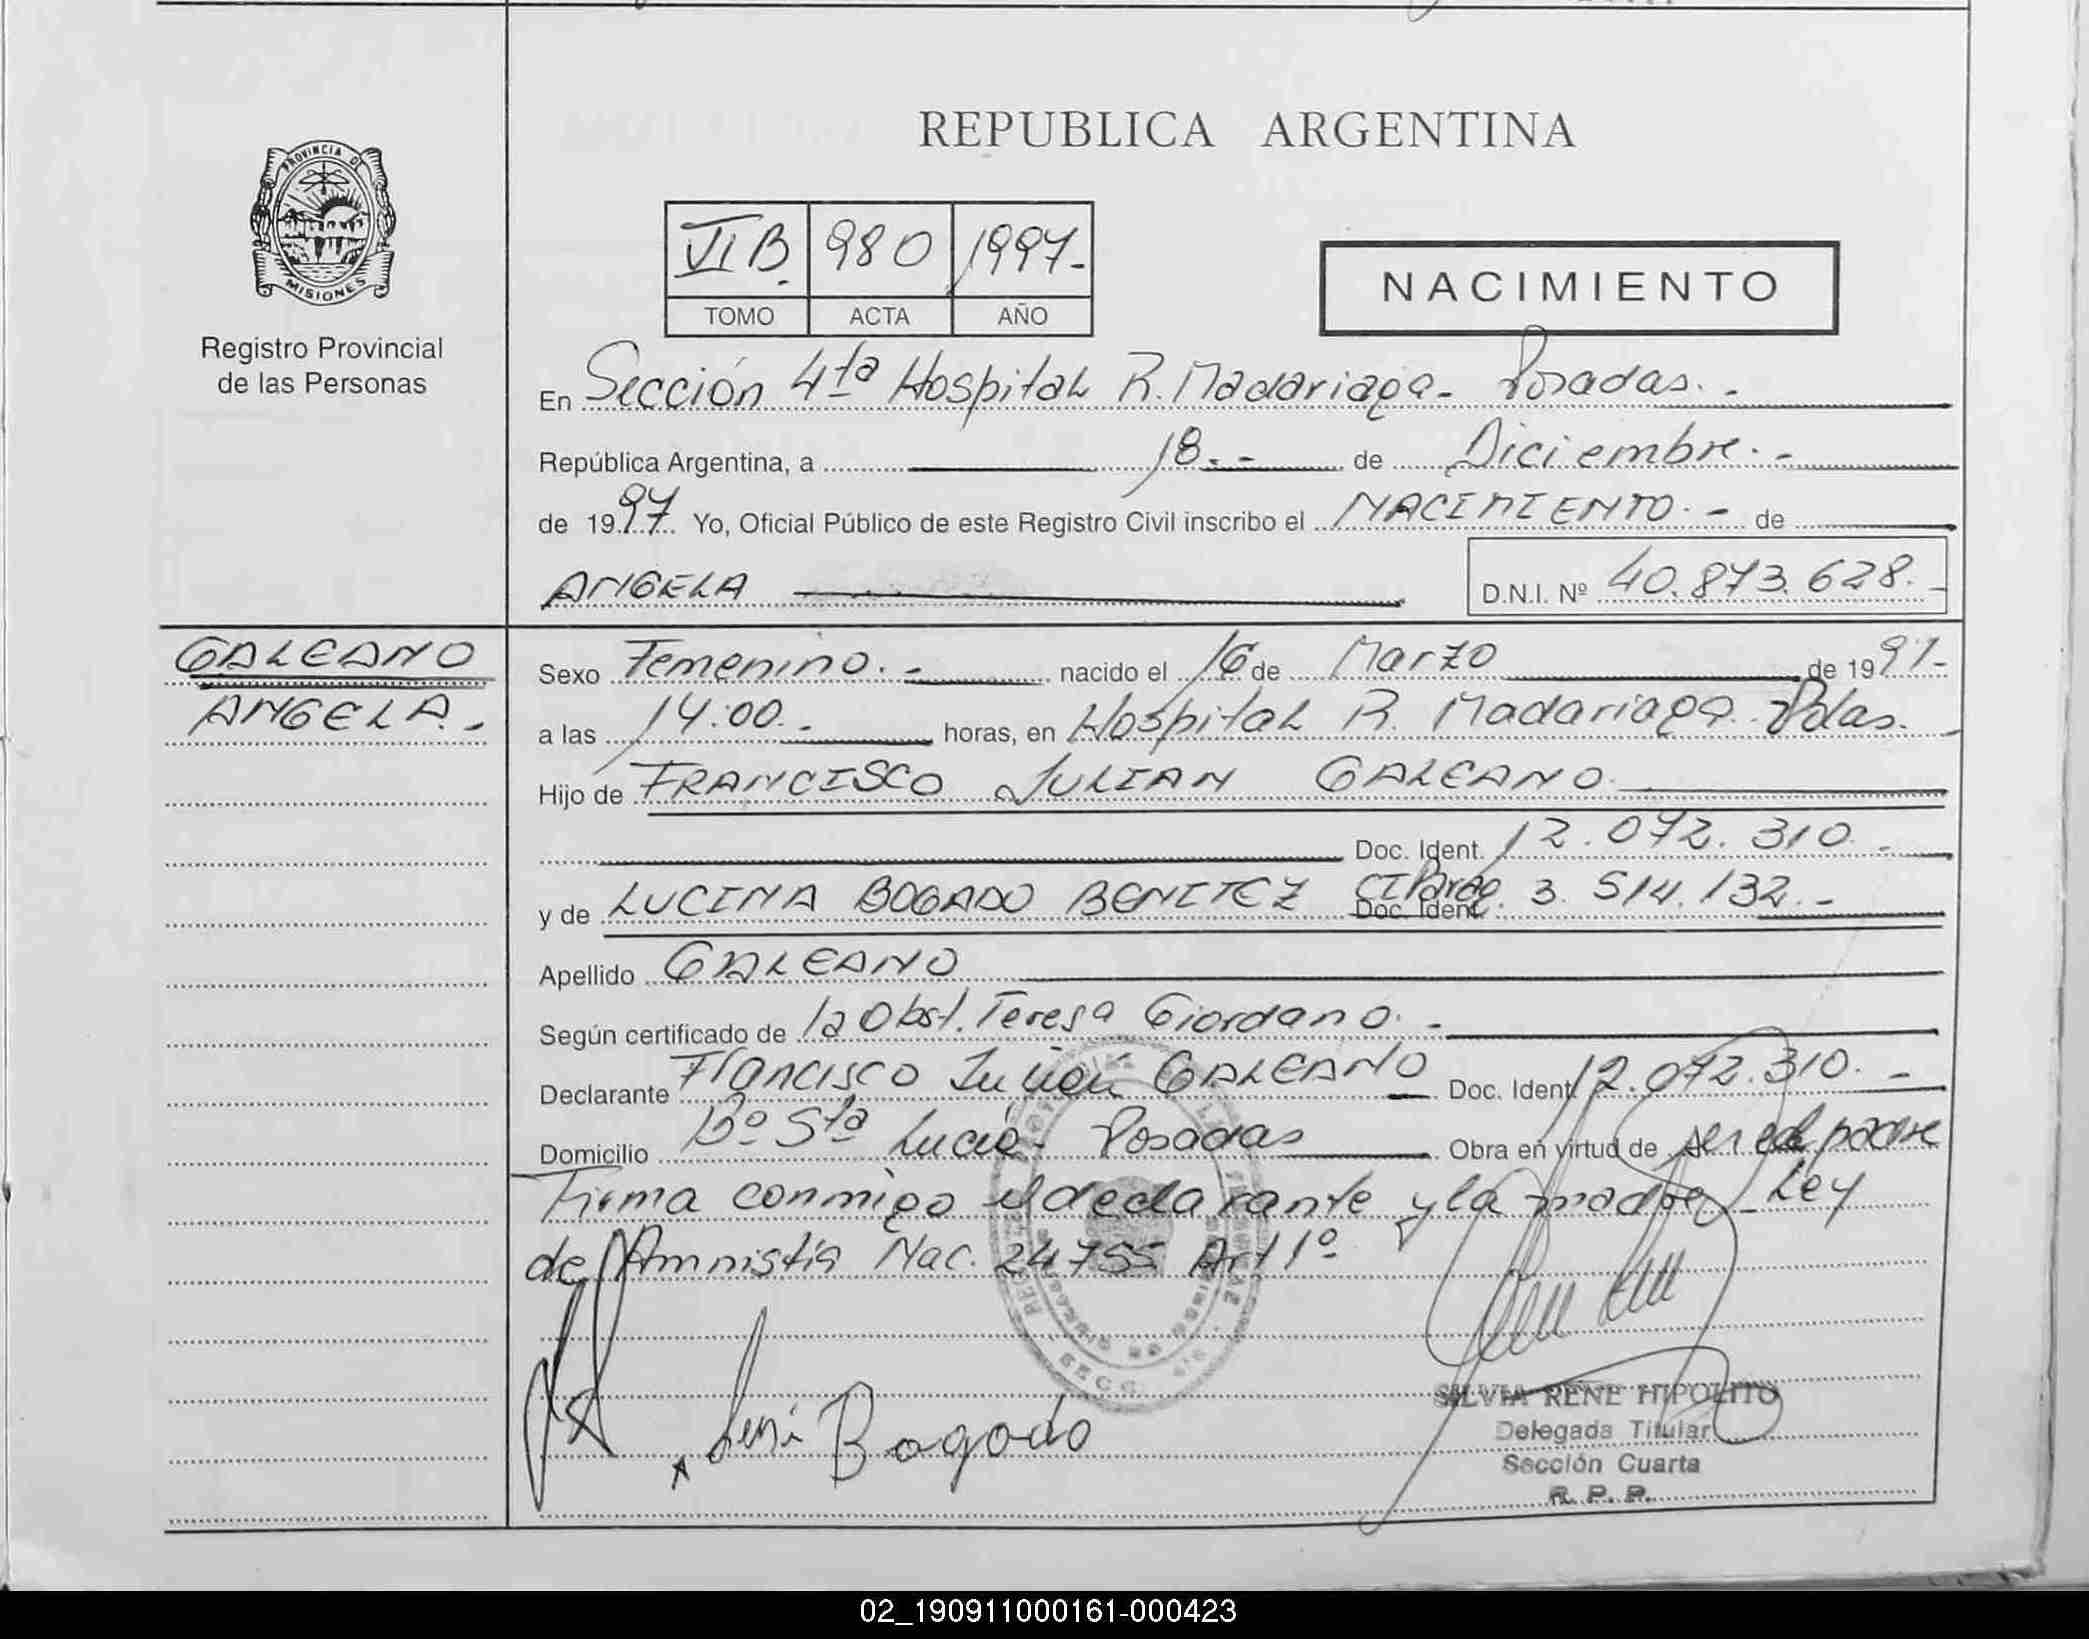 REPUBLICA ARGENTINA
PROVINCIA DE
MISIONES
Registro Provincial
de las Personas
VI B. 980 1997.-
TOMO ACTA AÑO
NACIMIENTO
En Sección 4ta Hospital R. Madariaga- Posadas.-
República Argentina, a 18.- de Diciembre.-
de 1997 Yo, Oficial Público de este Registro Civil inscribo el NACIMIENTO.- de
ANGELA
D.N.I. Nº 40.873.628.-
GALEANO
ANGELA.-
Sexo Femenino.- nacido el 16 de Marzo de 1997-
a las 14:00.- horas, en Hospital R. Madariaga. Pdas.
Hijo de FRANCISCO JULIAN GALEANO
Doc. Ident. 12.072.310.-
y de LUCINA BOGADO BENITEZ Doc. Ident. CI Parag. 3.514.132.-
Apellido GALEANO
Según certificado de la Obst. Teresa Giordano.-
Declarante Francisco Julián GALEANO Doc. Ident. 12.072.310.-
Domicilio Bº Sta Lucía- Posadas Obra en virtud de ser el padre
Firma conmigo el declarante y la madre- Ley
de Amnistía Nac. 24755 Art 1º
Bogado
SILVIA RENE HIPOLITO
Delegada Titular
Sección Cuarta
R. P. P.
02_190911000161-000423